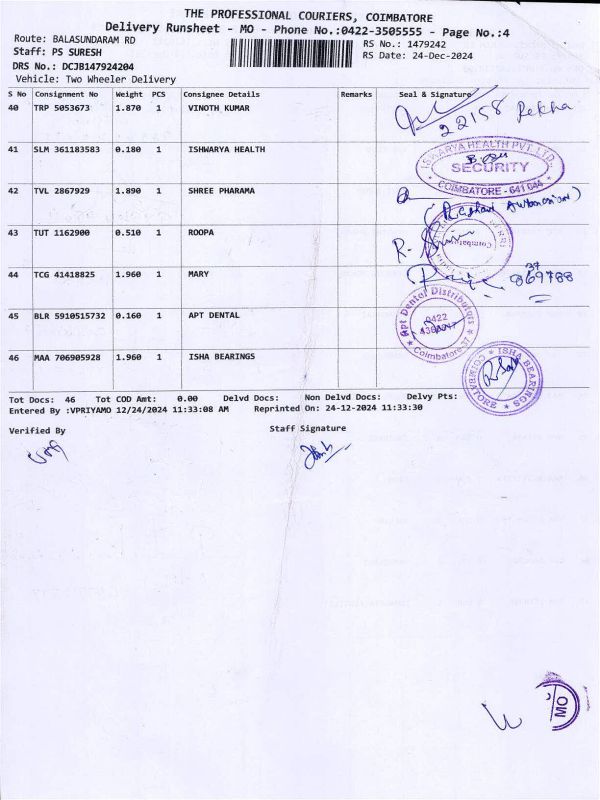 THE PROFESSIONAL COURIERS, COIMBATORE
Delivery Runsheet - MO - Phone No.:0422-3505555 - Page No.:4
Route: BALASUNDARAM RD
RS No.: 1479242
Staff: PS SURESH
RS Date: 24-Dec-2024
DRS No.: DCJB147924204
Vehicle: Two Wheeler Delivery
S No Consignment No Weight PCS Consignee Details Remarks Seal & Signature
40 TRP 5053673 1.870 1 VINOTH KUMAR
22158 Rekha
41 SLM 361183583 0.180 1 ISHWARYA HEALTH
ISWARYA HEALTH PVT. LTD.
SECURITY
COIMBATORE - 641 044
42 TVL 2867929 1.890 1 SHREE PHARAMA
43 TUT 1162900 0.510 1 ROOPA
Coimbatore
44 TCG 41418825 1.960 1 MARY
45 BLR 5910515732 0.160 1 APT DENTAL
Apt Dental Distributors
0422
Coimbatore-37
46 MAA 706905928 1.960 1 ISHA BEARINGS
ISHA BEARINGS
COIMBATORE
Tot Docs: 46 Tot COD Amt: 0.00 Delvd Docs: Non Delvd Docs: Delvy Pts:
Entered By :VPRIYAMO 12/24/2024 11:33:08 AM Reprinted On: 24-12-2024 11:33:30
Verified By Staff Signature
MO